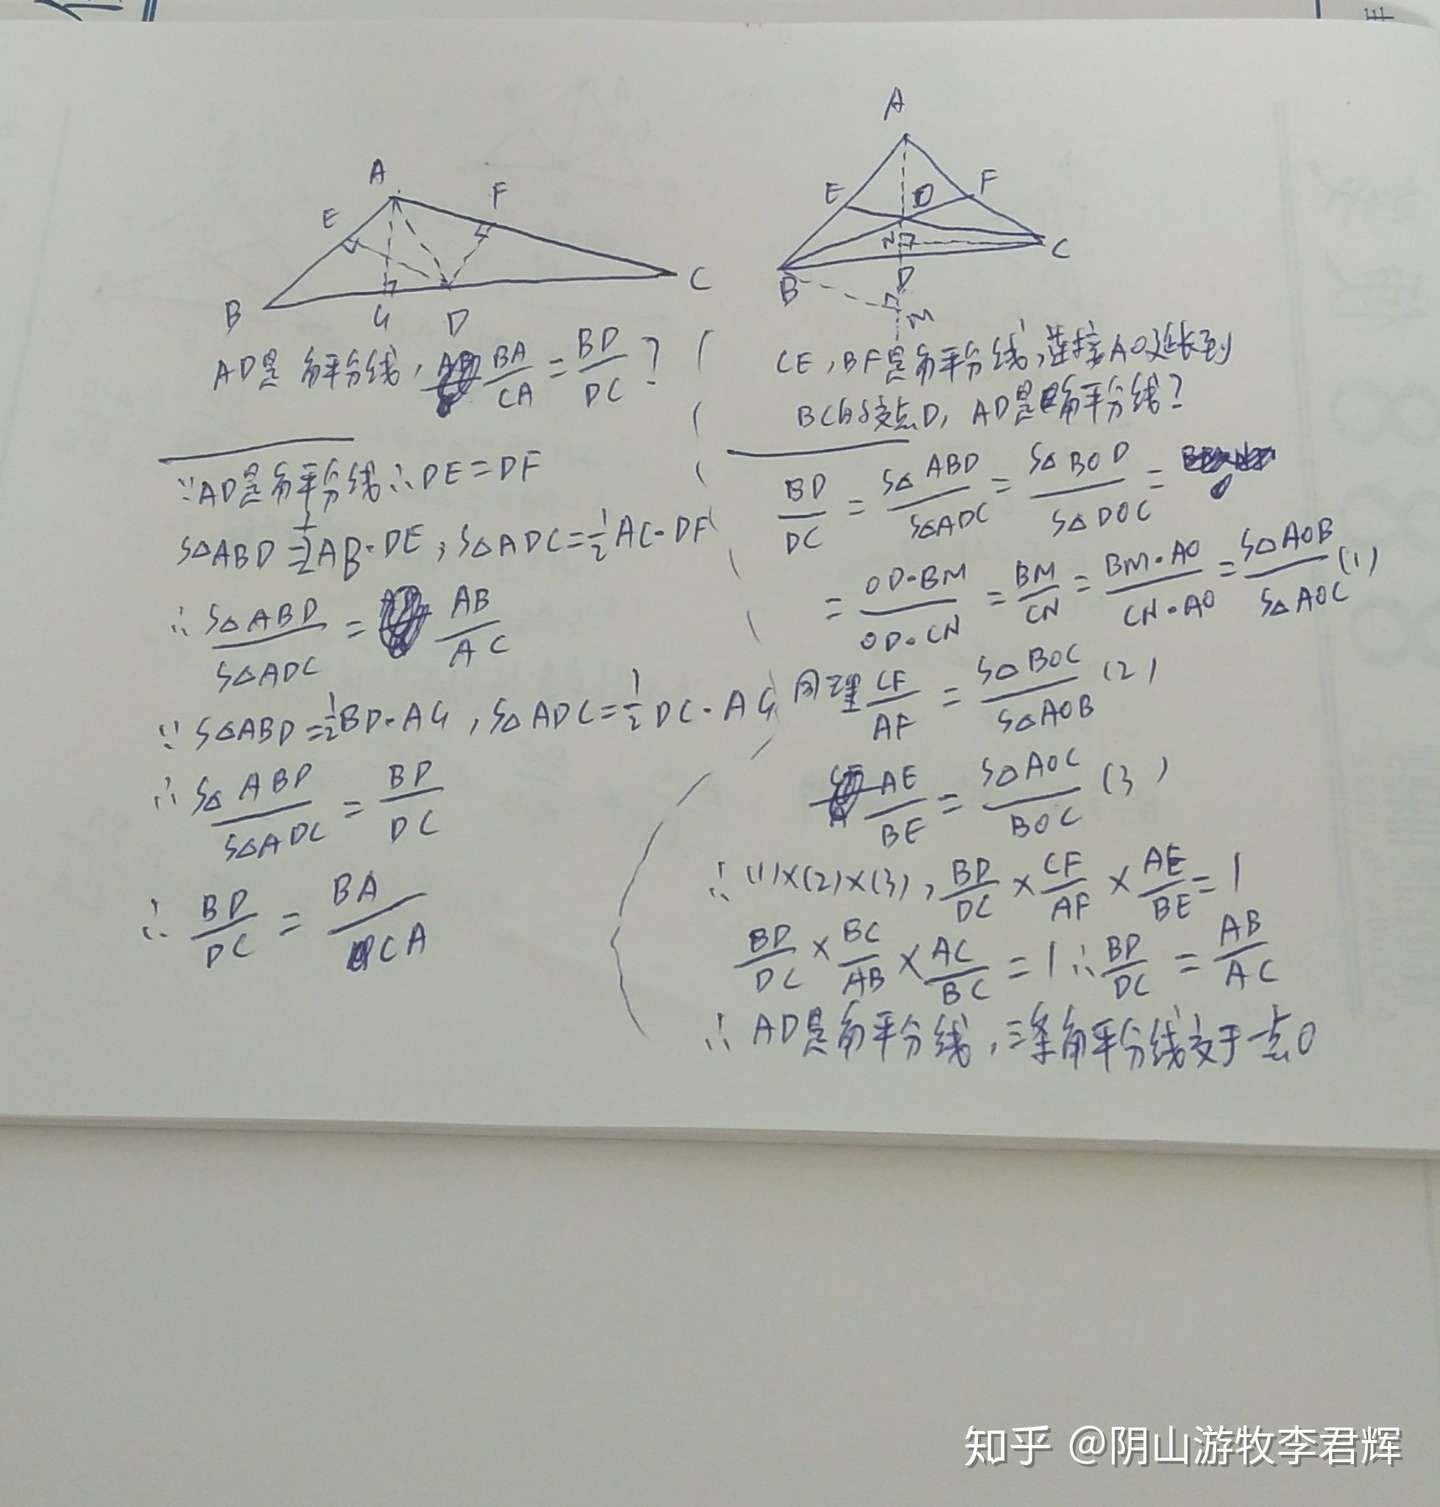 A
E
F
B
G
D
C
AD是角平分线, BA/CA = BD/DC ?
∵AD是角平分线∴DE=DF
S△ABD=1/2AB·DE, S△ADC=1/2AC·DF
∴ S△ABD/S△ADC = AB/AC
∵ S△ABD=1/2BD·AG, S△ADC=1/2DC·AG
∴ S△ABD/S△ADC = BD/DC
∴ BD/DC = BA/CA
A
E
O
F
N
B
D
C
M
CE,BF是角平分线,连接AO延长到
BC的交点D, AD是角平分线?
BD/DC = S△ABD/S△ADC = S△BOD/S△DOC =
= OD·BM/OD·CN = BM/CN = BM·AO/CN·AO = S△AOB/S△AOC (1)
同理 CF/AF = S△BOC/S△AOB (2)
AE/BE = S△AOC/BOC (3)
∴ (1)×(2)×(3), BD/DC × CF/AF × AE/BE = 1
BD/DC × BC/AB × AC/BC = 1 ∴ BD/DC = AB/AC
∴ AD是角平分线,三条角平分线交于一点O
知乎 @阴山游牧李君辉